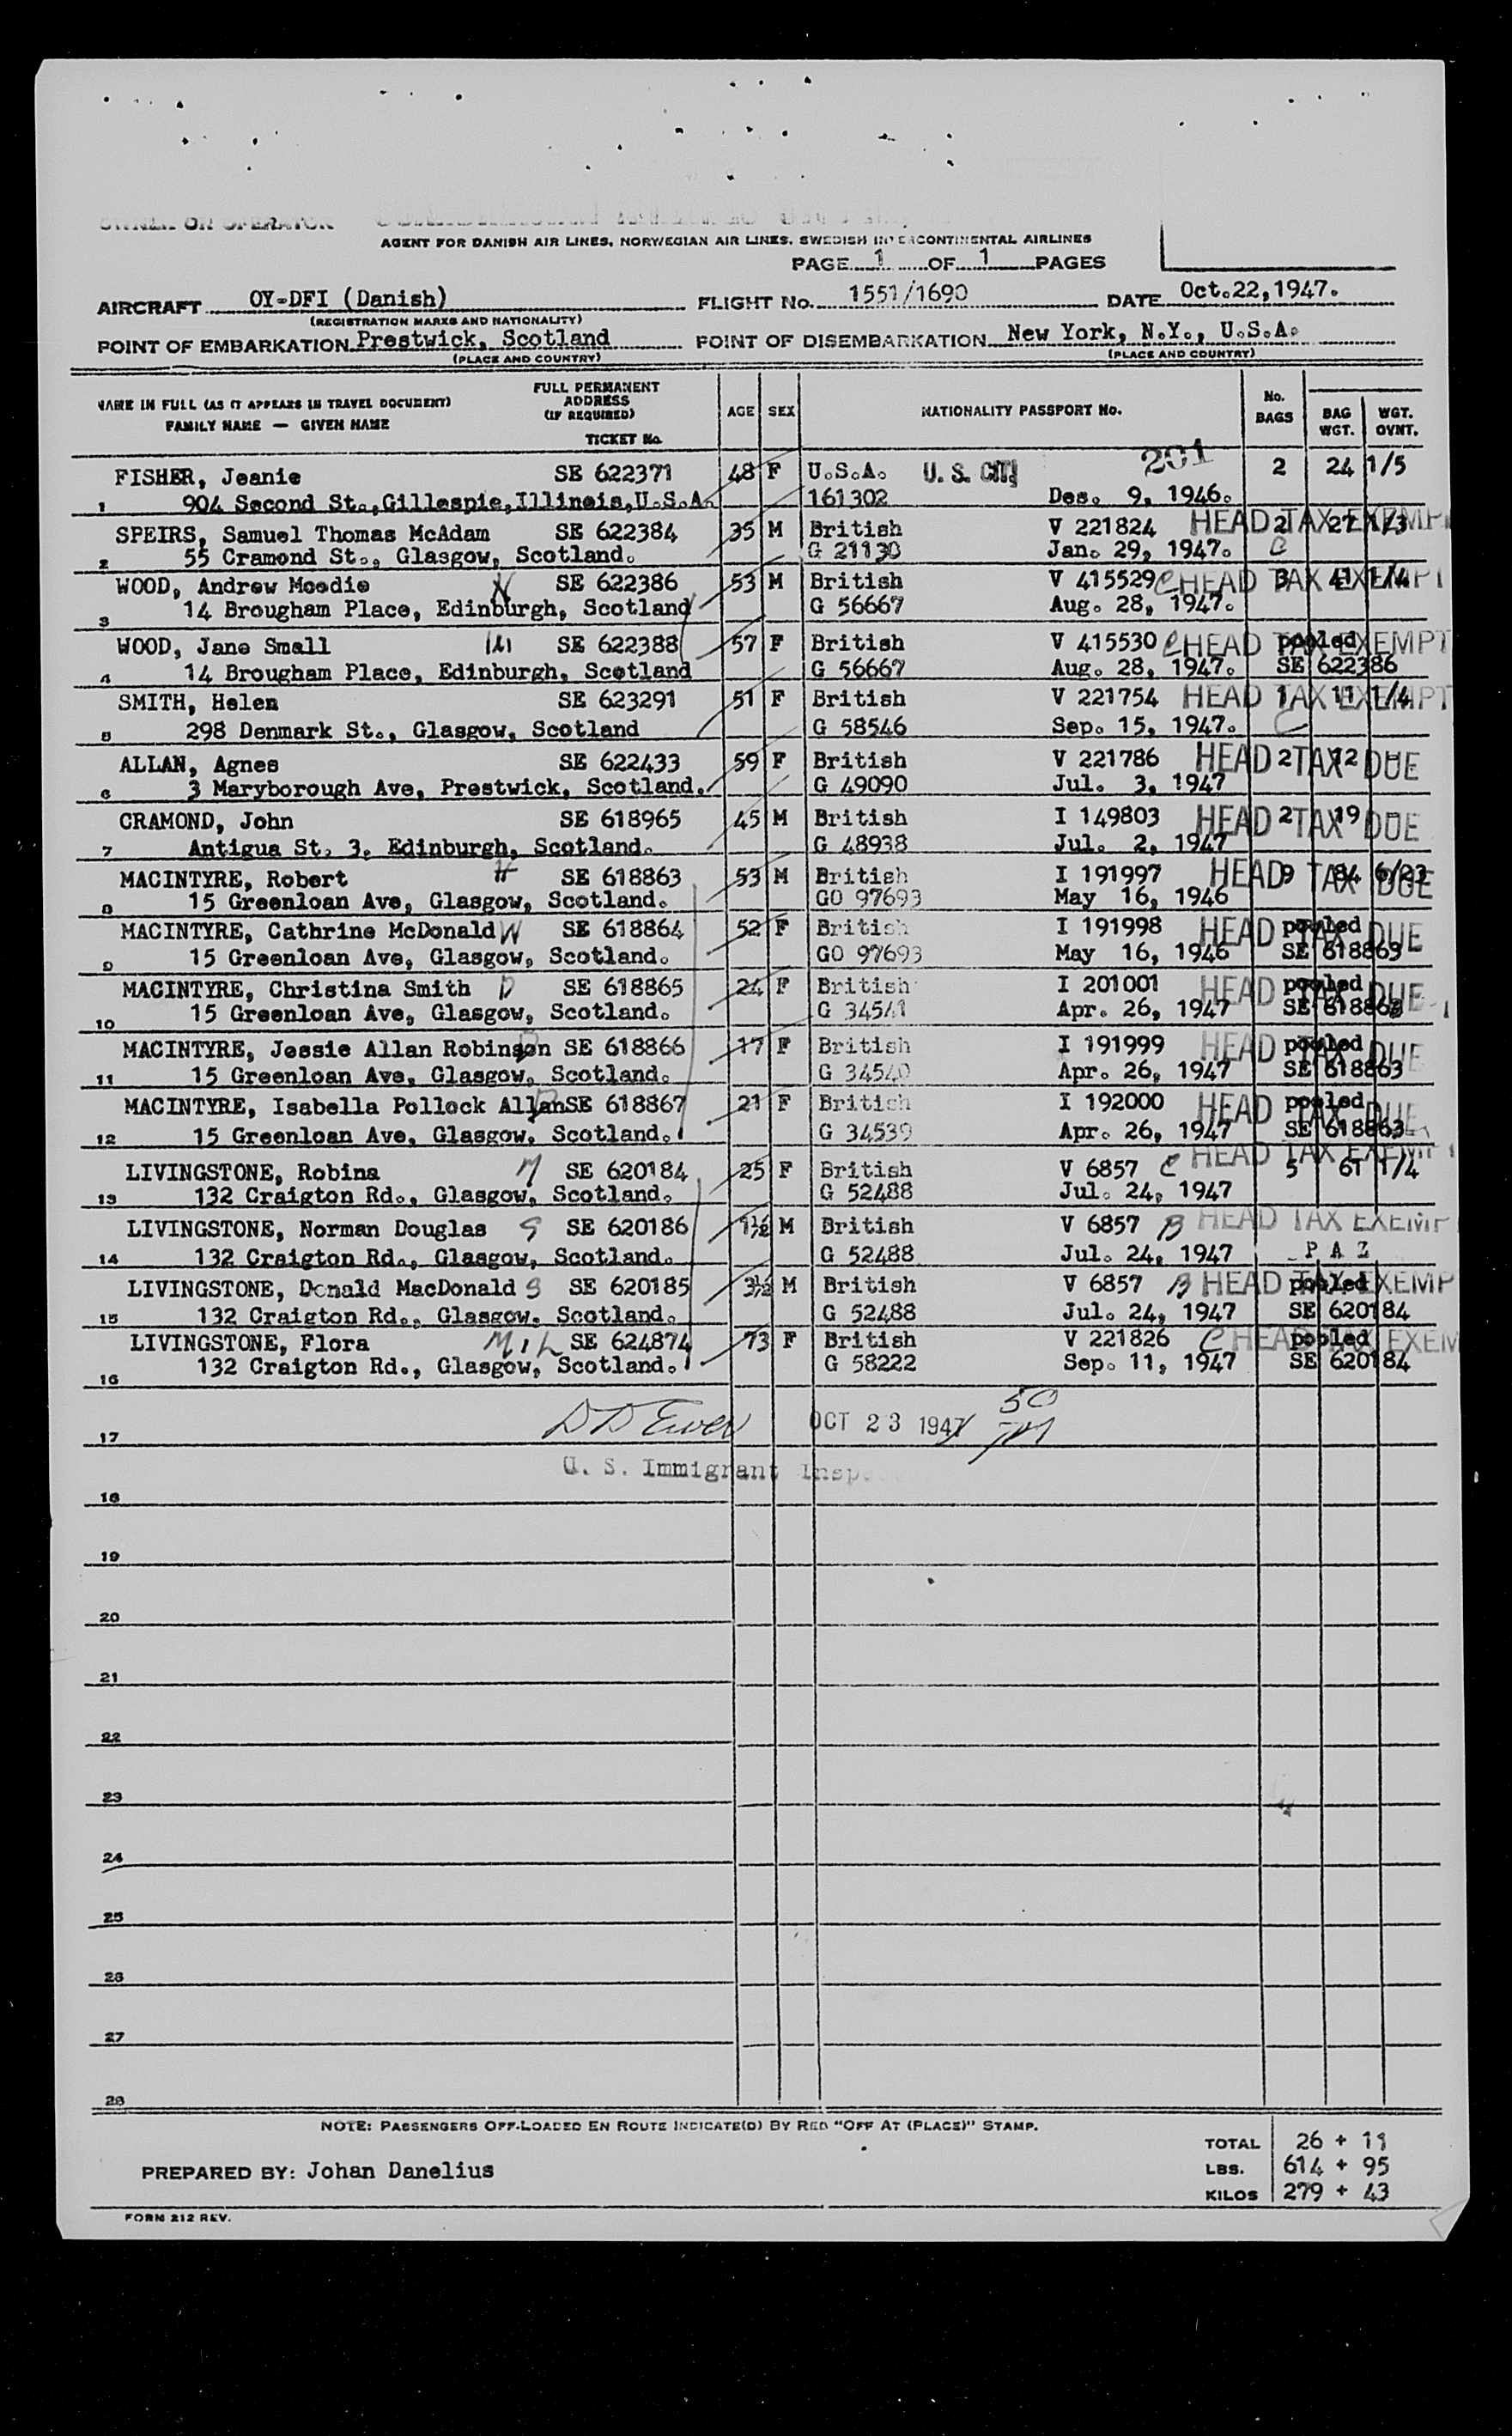 OWNER OR OPERATOR
AGENT FOR DANISH AIR LINES, NORWEGIAN AIR LINES, SWEDISH INTERCONTINENTAL AIRLINES
PAGE 1 OF 1 PAGES
AIRCRAFT OY-DFI (Danish) FLIGHT No. 1551/1690 DATE Oct.22,1947.
(REGISTRATION MARKS AND NATIONALITY)
POINT OF EMBARKATION Prestwick, Scotland POINT OF DISEMBARKATION New York, N.Y., U.S.A.
(PLACE AND COUNTRY) (PLACE AND COUNTRY)
NAME IN FULL (AS IT APPEARS IN TRAVEL DOCUMENT)
FAMILY NAME — GIVEN NAME
FULL PERMANENT
ADDRESS
(IF REQUIRED)
TICKET No.
AGE SEX NATIONALITY PASSPORT No. No. BAGS BAG WGT. WGT. OVNT.
201
FISHER, Jeanie SE 622371 48 F U.S.A. U. S. CIT 2 24 1/5
1 904 Second St.,Gillespie,Illinois,U.S.A. 161302 Des. 9, 1946.
SPEIRS, Samuel Thomas McAdam SE 622384 35 M British V 221824 HEAD TAX EXEMPT 2 27 1/3
2 55 Cramond St., Glasgow, Scotland. G 21130 Jan. 29, 1947. C
WOOD, Andrew Moodie H SE 622386 53 M British V 415529 C HEAD TAX EXEMPT 3 41 1/4
3 14 Brougham Place, Edinburgh, Scotland G 56667 Aug. 28, 1947.
WOOD, Jane Small W SE 622388 57 F British V 415530 C HEAD TAX EXEMPT pooled
4 14 Brougham Place, Edinburgh, Scotland G 56667 Aug. 28, 1947. SE 622386
SMITH, Helen SE 623291 51 F British V 221754 HEAD TAX EXEMPT 1 11 1/4
5 298 Denmark St., Glasgow, Scotland G 58546 Sep. 15, 1947. C
ALLAN, Agnes SE 622433 59 F British V 221786 HEAD TAX DUE 2 12
6 3 Maryborough Ave, Prestwick, Scotland. G 49090 Jul. 3, 1947
CRAMOND, John SE 618965 45 M British I 149803 HEAD TAX DUE 2 19
7 Antigua St. 3, Edinburgh, Scotland. G 48938 Jul. 2, 1947
MACINTYRE, Robert H SE 618863 53 M British I 191997 HEAD TAX DUE 9 84 6/23
8 15 Greenloan Ave, Glasgow, Scotland. GO 97693 May 16, 1946
MACINTYRE, Cathrine McDonald W SE 618864 52 F British I 191998 HEAD TAX DUE pooled
9 15 Greenloan Ave, Glasgow, Scotland. GO 97693 May 16, 1946 SE 618863
MACINTYRE, Christina Smith D SE 618865 24 F British I 201001 HEAD TAX DUE pooled
10 15 Greenloan Ave, Glasgow, Scotland. G 34541 Apr. 26, 1947 SE 618863
MACINTYRE, Jessie Allan Robinson D SE 618866 17 F British I 191999 HEAD TAX DUE pooled
11 15 Greenloan Ave, Glasgow, Scotland. G 34540 Apr. 26, 1947 SE 618863
MACINTYRE, Isabella Pollock Allan D SE 618867 21 F British I 192000 HEAD TAX DUE pooled
12 15 Greenloan Ave, Glasgow, Scotland. G 34539 Apr. 26, 1947 SE 618863
LIVINGSTONE, Robina M SE 620184 25 F British V 6857 C HEAD TAX EXEMPT 5 61 1/4
13 132 Craigton Rd., Glasgow, Scotland. G 52488 Jul. 24, 1947
LIVINGSTONE, Norman Douglas S SE 620186 1½ M British V 6857 B HEAD TAX EXEMP
14 132 Craigton Rd., Glasgow, Scotland. G 52488 Jul. 24, 1947 P A Z
LIVINGSTONE, Donald MacDonald S SE 620185 3½ M British V 6857 B HEAD TAX EXEMP pooled
15 132 Craigton Rd., Glasgow. Scotland. G 52488 Jul. 24, 1947 SE 620184
LIVINGSTONE, Flora M i L SE 624874 73 F British V 221826 C HEAD TAX EXEM pooled
16 132 Craigton Rd., Glasgow, Scotland. G 58222 Sep. 11, 1947 SE 620184
17 OCT 23 1947 50
U. S. Immigrant Insp
18
19
20
21
22
23
24
25
26
27
28
NOTE: PASSENGERS OFF-LOADED EN ROUTE INDICATE(D) BY RED "OFF AT (PLACE)" STAMP.
TOTAL 26 + 11
PREPARED BY: Johan Danelius LBS. 614 + 95
KILOS 279 + 43
FORM 212 REV.